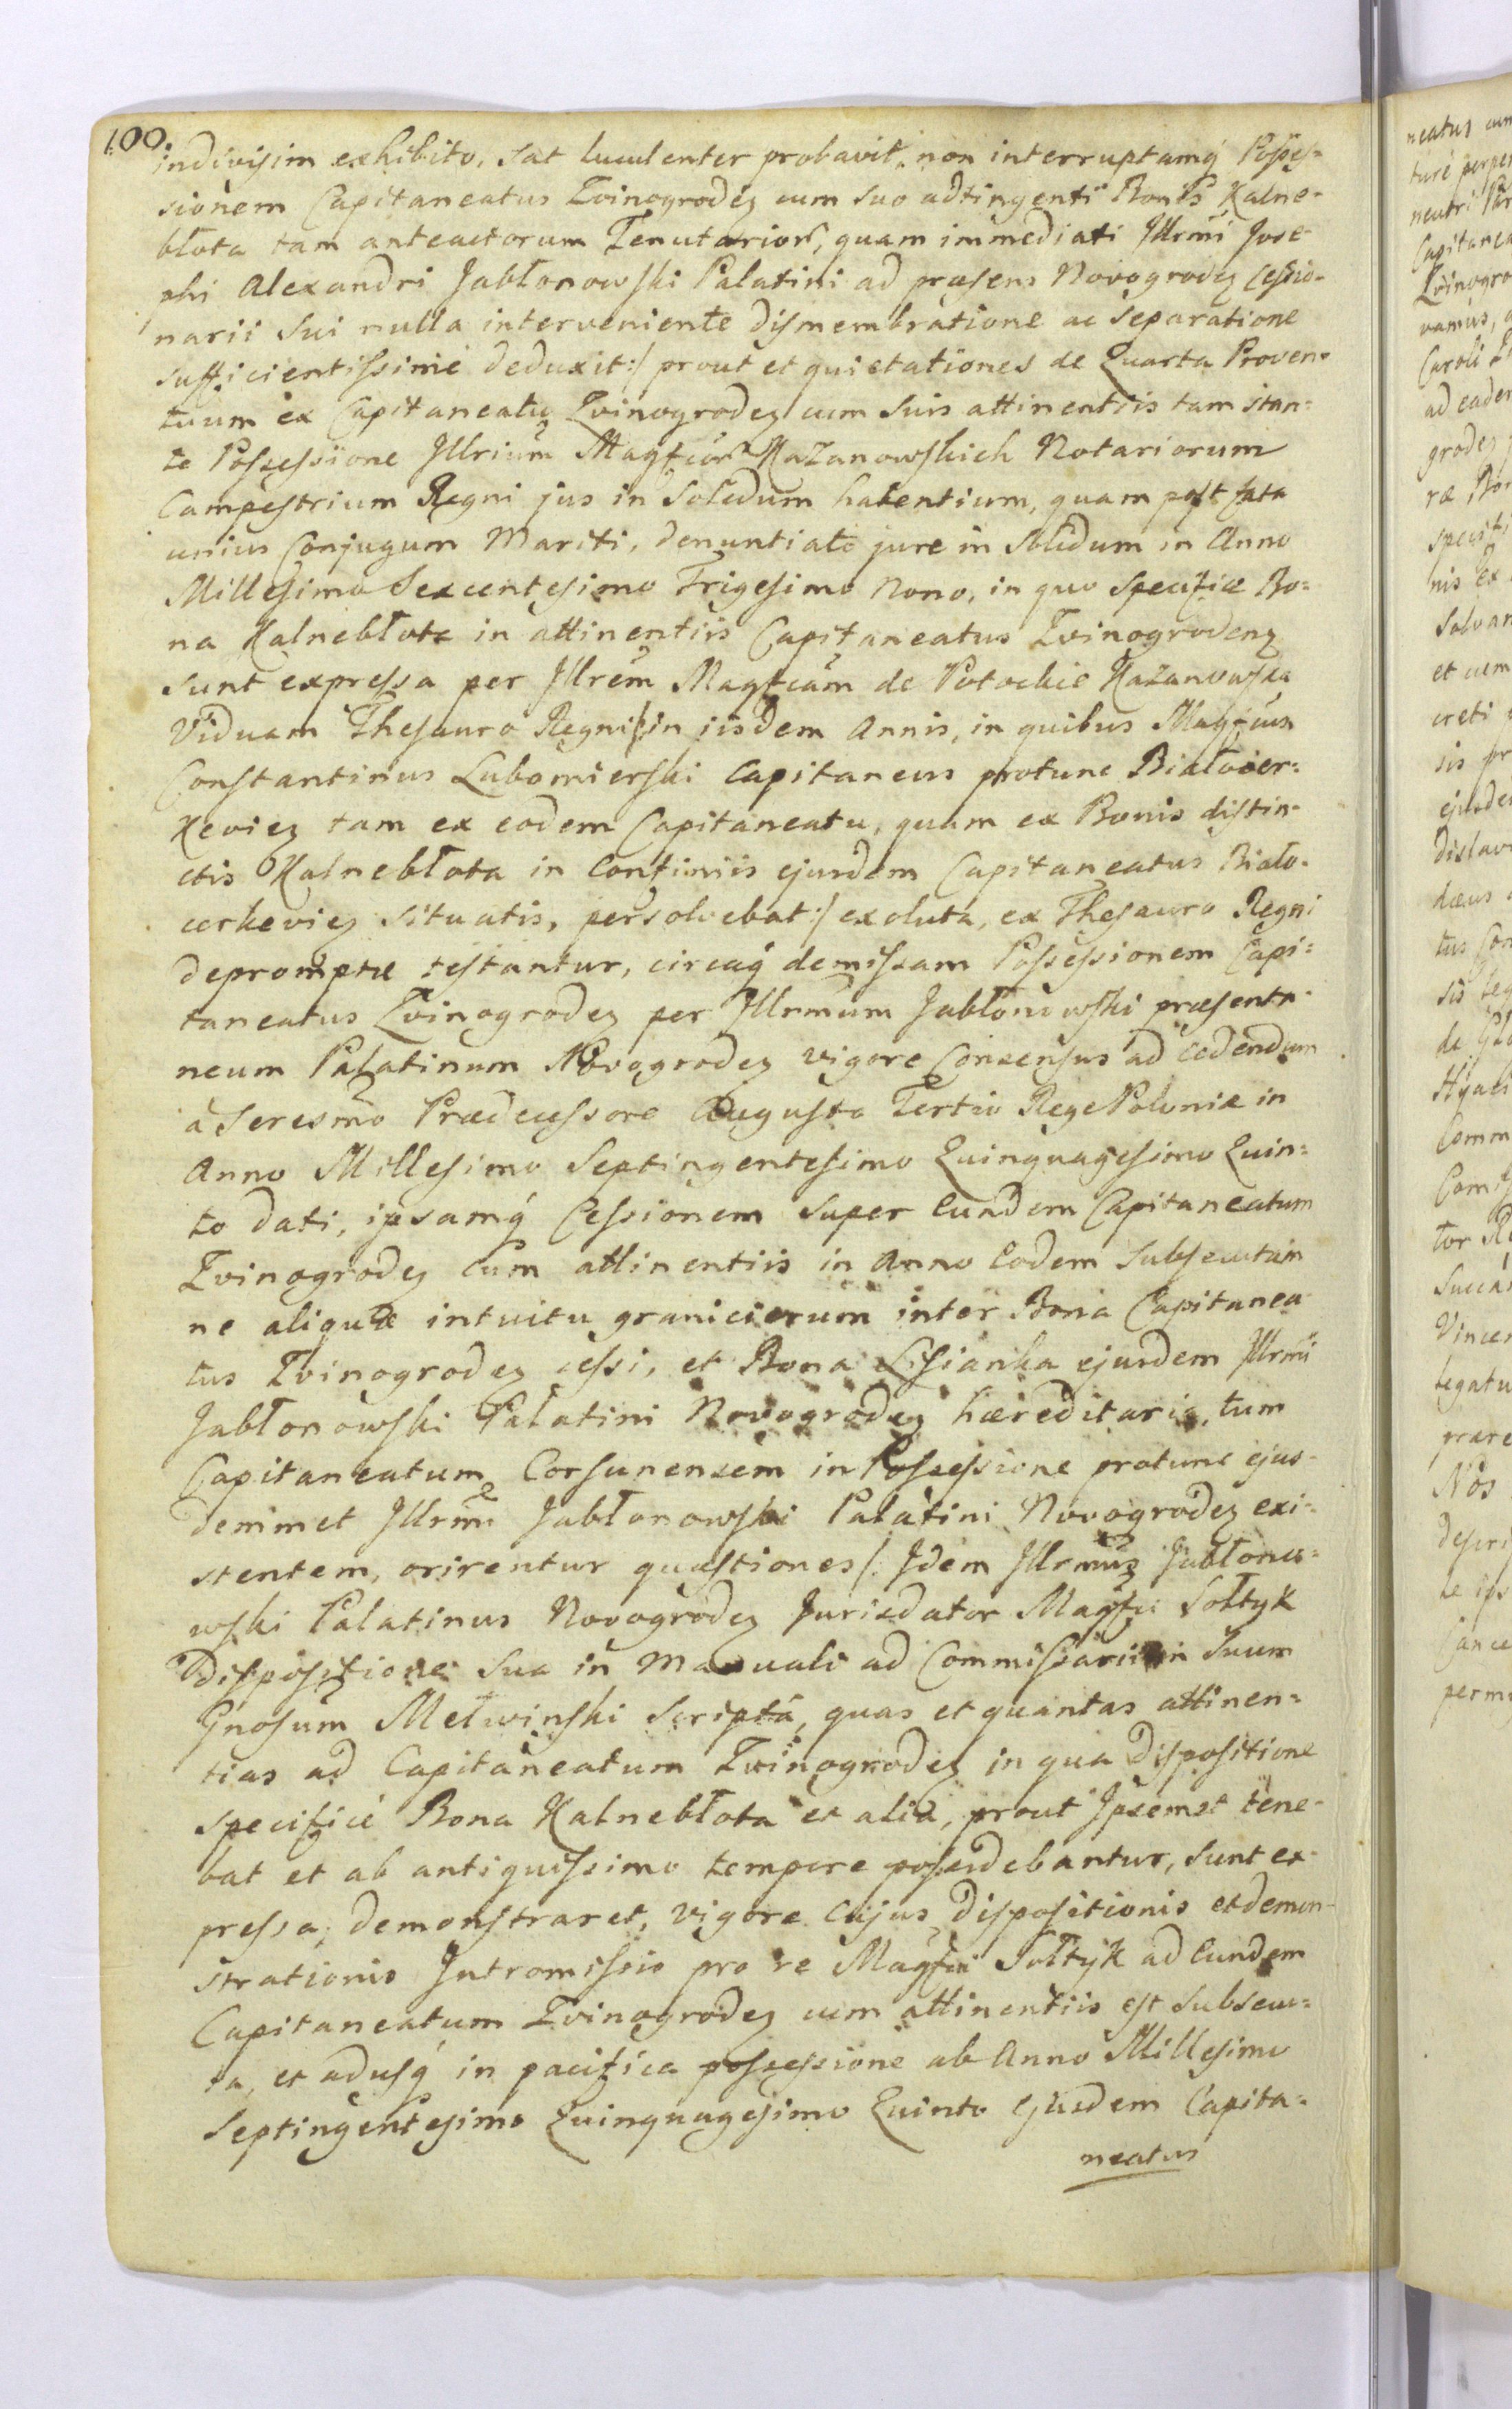 100.
indivisim exhibito, sat luculenter probavit, non interruptamq́ Posses-
sionem Capitaneatus Zvinogrodeȝ cum suo adtingenti Bonis Kalne-
błota tam anteactorum Tenutarior, quam immediati Jllrmi Jose-
phi Alexandri Jabłonowski Palatini ad præsens Novogrodeȝ Cessio-
narii sui nulla interveniente dismembratione ac separatione
sufficientissimè deduxit:/ prout et quietationes de Quarta Proven-
tuum ex Capitaneatu Zvinogrodeȝ cum suis attinentiis tam stan:
te Possessione Jllrium Magfcor Kazanowskich Notariorum
Campestrium Regni jus in solidum habentium, quam post fata
unius Conjugum Mariti, denuntiato jure in solidum in Anno
Millesimo Sexcentesimo Trigesimo Nono, in quo specifice Bo:
na Kalnebłota in attinentiis Capitaneatus Zvinogrodenȝ
sunt expressa per Jllrem Magfcam de Potockie Kazanowska
Viduam Thesauro Regni /:in iisdem Annis, in quibus Magfcus
Constantinus Lubomierski Capitaneus protunc Białocer:
Kevieȝ tam ex eodem Capitaneatu, quam ex Bonis distin-
ctis Kalnebłota in Confiniis ejusdem Capitaneatus Biało-
cerkevieȝ situatis, persolvebat:/ exoluta, ex Thesauro Regni
depromptæ testantur, circaq́ demissam Possessionem Capi:
taneatus Zvinogrodeȝ per Jllrmum Jabłonowski præsenta-
neum Palatinum Novogrodeȝ vigore Consensus ad cedendum
à Seresmo Prædecessore Augusto Tertio Rege Poloniæ in
Anno Millesimo Septingentesimo Quinquagesimo Quin:
to dati, ipsamq́ Cessionem super Eundem Capitaneatum
Zvinogrodeȝ Cum attinentiis in Anno Eodem subsecutam
ne aliquæ intuitu granicierum inter Bona Capitanea-
tus Zvinogrodeȝ cessi, et Bona Lisianka ejusdem Jllrmi
Jabłonowski Palatini Novogrodeȝ hæreditaria, tum
Capitaneatum Corsunensem in Possessione protunc ejus-
demmet Jllrmi Jabłonowski Palatini Novogrodeȝ exi:
stentem, orirentur quæstiones/: Jdem Jllrmus Jabłono:
wski Palatinus Novogrodeȝ Jurisdator Magfci Sołtyk
Dispositione sua in Manuali ad Commissarium suum
Gnosum Mełwinski scriptâ, quas et quantas attinen:
tias ad Capitaneatum Zvinogrodeȝ in qua Dispositione
specificè Bona Kalnebłota et alia, prout Jpsemet tene-
bat et ab antiquissimo tempore possidebantur, sunt ex-
pressa; demonstraret, vigore cujus Dispositionis et demon-
strationis Jntromissio pro re Magfci Sołtyk ad Eundem
Capitaneatum Zvinogrodeȝ cum attinentiis est subsecu:
ta, et adusq́ in pacifica possessione ab Anno Millesimo
Septingentesimo Quinquagesimo Quinto Ejusdem Capita:
neatus